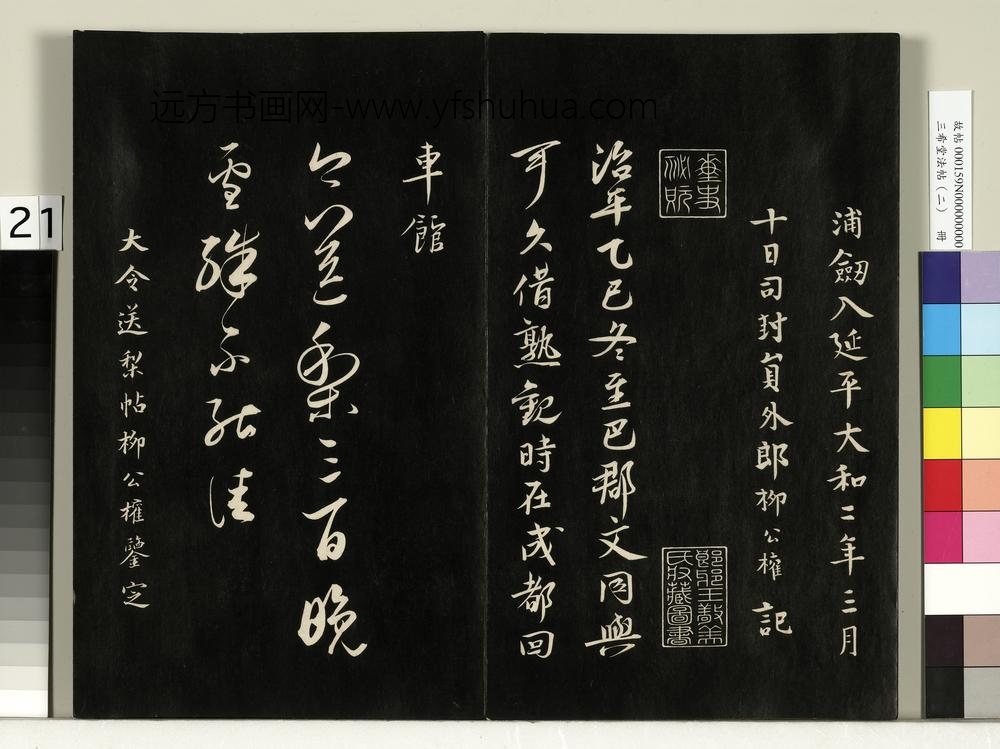 浦劒入延平大和二年三月
十日司封貟外郎柳公權記
治平乙巳冬至巴郡文同與
可久借熟觀時在成都回
車館
今送梨三百晚
雪殊不能佳
大令送梨帖柳公權鑒定
远方书画网-www.yfshuhua.com
21
故帖000159N000000000
三希堂法帖(二) 冊